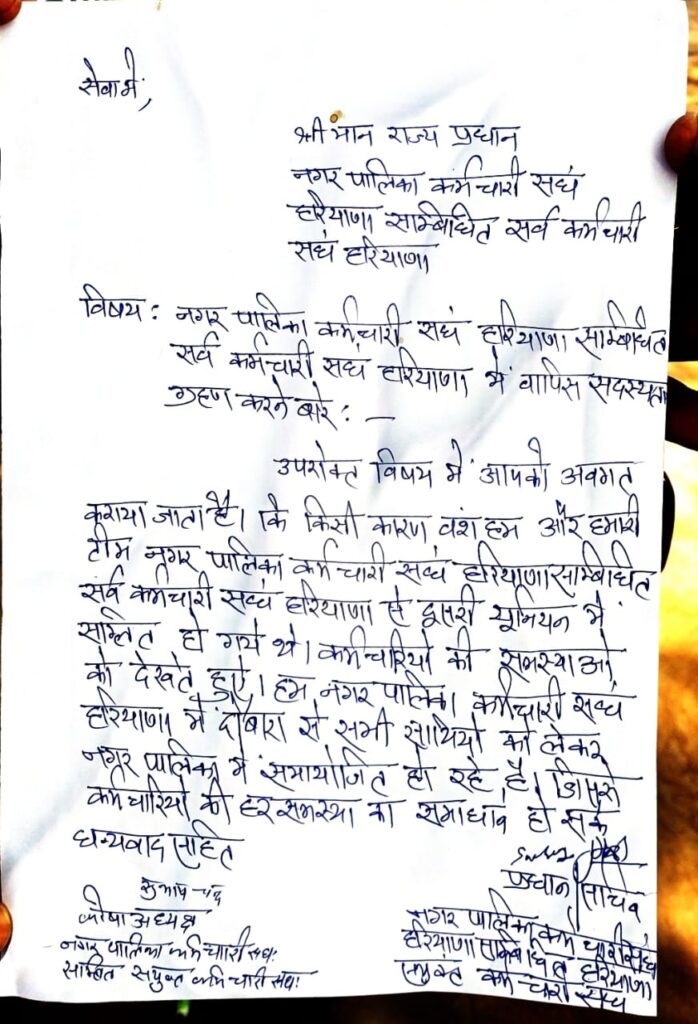 सेवा में,
श्री मान राज्य प्रधान
नगर पालिका कर्मचारी सघं
हरियाणा सम्बिधित सर्व कर्मचारी
सघं हरियाणा
विषय : नगर पालिका कर्मचारी सघं हरियाणा सम्बिधित
सर्व कर्मचारी सघं हरियाणा में वापिस सदस्यता
ग्रहण करने बारे : —
उपरोक्त विषय में आपको अवगत
कराया जाता है। कि किसी कारण वंश हम और हमारी
टीम नगर पालिका कर्मचारी सघं हरियाणा सम्बिधित
सर्व कर्मचारी सघं हरियाणा से दूसरी यूनियन में
हो गये थे। कर्मचारियो की समस्याओ
को देखते हुए। हम नगर पालिका कर्मचारी सघं
हरियाणा में दोबारा से सभी साथियो को लेकर
नगर पालिका में समायोजित हो रहे है। जिससे
कर्मचारियो की हर समस्या का समाधान हो सके
धन्यवाद सहित
प्रधान सचिव
सुभाष चंद
कोषा अध्यक्ष
नगर पालिका कर्मचारी सघः
सयुक्त कर्मचारी सघः
नगर पालिका कर्मचारी सघं
हरियाणा सम्बिधित हरियाणा
सयुक्त कर्मचारी सघं